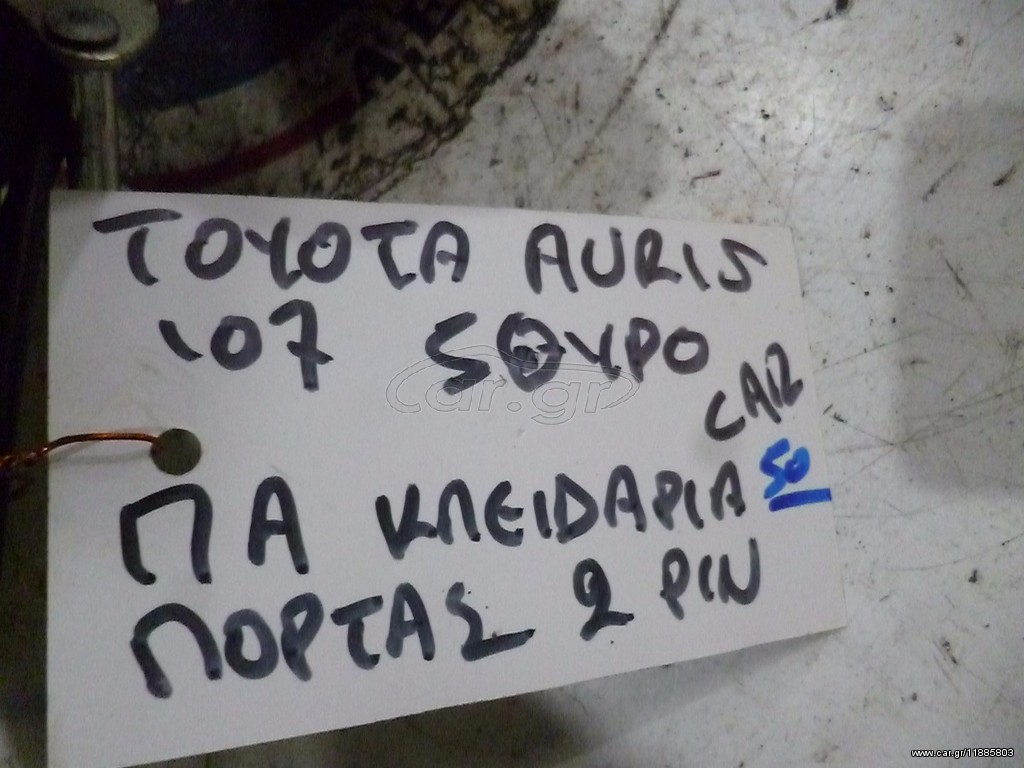 TOYOTA AURIS
'07 5ΘΥΡΟ
CAR
50
ΠΑ ΚΛΕΙDΑΡΙΑ
ΠΟΡΤΑΣ 2 PIN
car.gr
www.car.gr/11885803